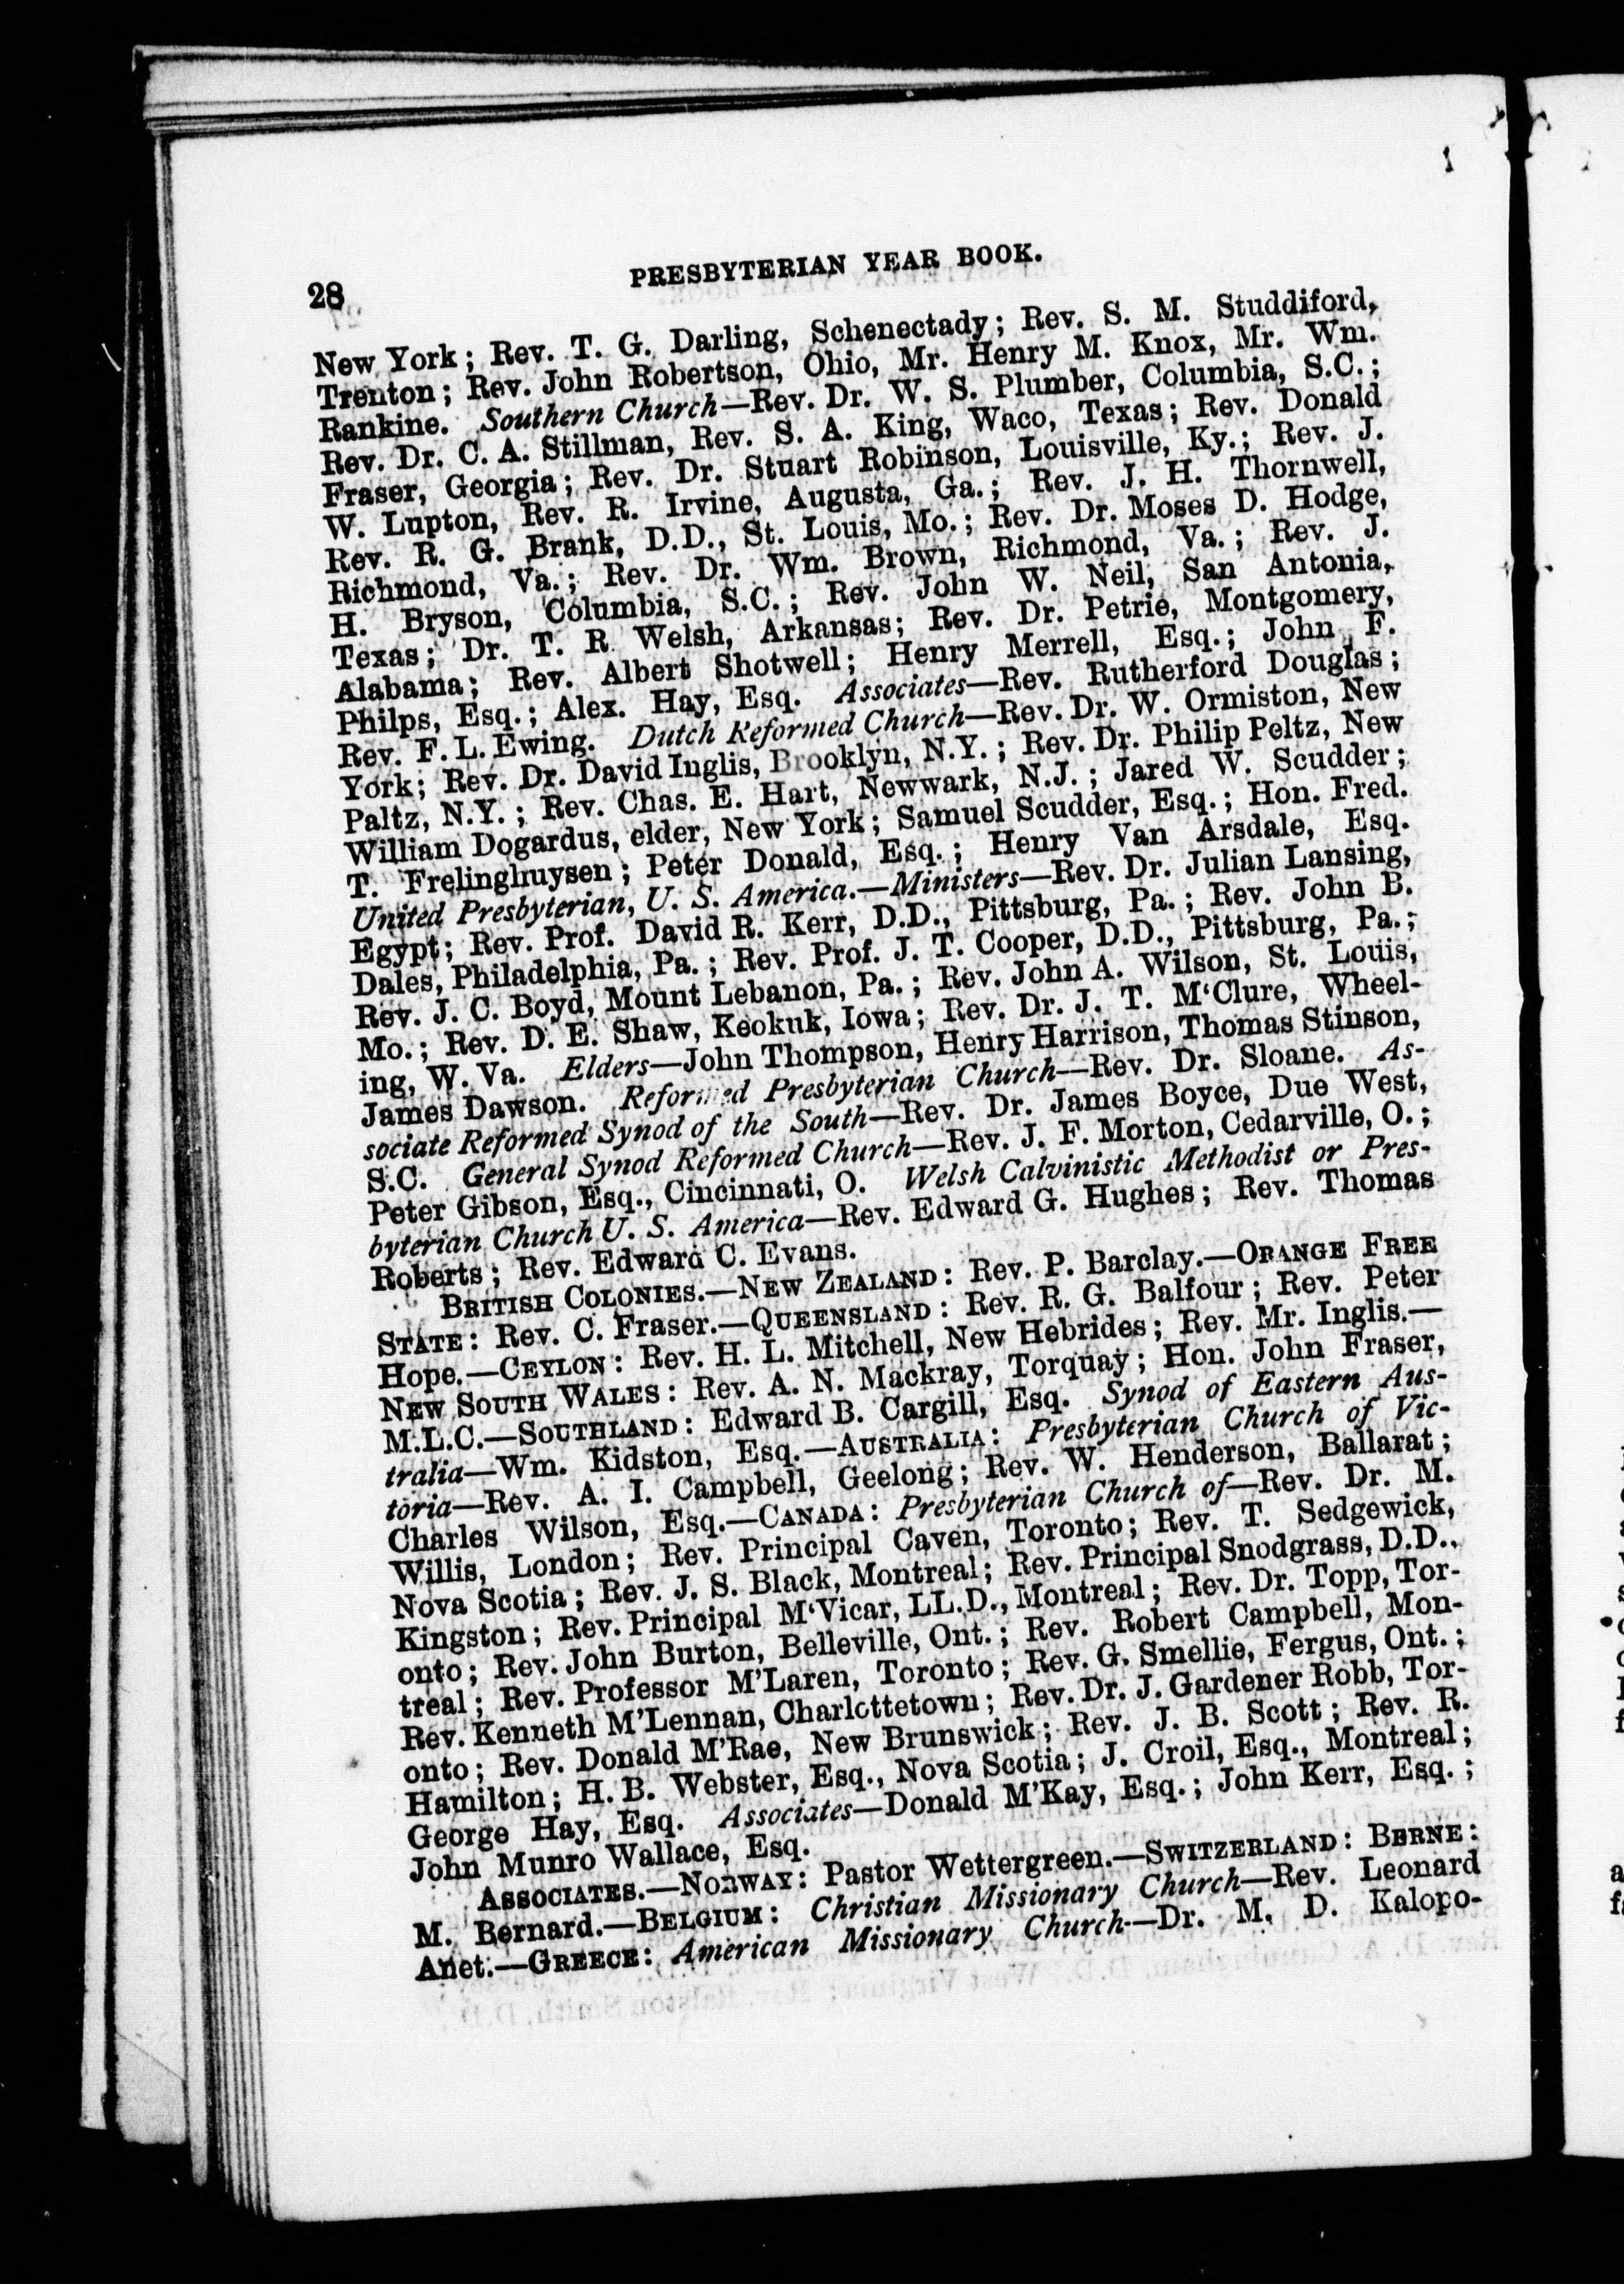 28 PRESBYTERIAN YEAR BOOK.
New York; Rev. T. G. Darling, Schenectady; Rev. S. M. Studdiford,
Trenton; Rev. John Robertson, Ohio, Mr. Henry M. Knox, Mr. Wm.
Rankine. Southern Church—Rev. Dr. W. S. Plumber, Columbia, S.C.;
Rev. Dr. C. A. Stillman, Rev. S. A. King, Waco, Texas; Rev. Donald
Fraser, Georgia; Rev. Dr. Stuart Robinson, Louisville, Ky.; Rev. J.
W. Lupton, Rev. R. Irvine, Augusta, Ga.; Rev. J. H. Thornwell,
Rev. R. G. Brank, D.D., St. Louis, Mo.; Rev. Dr. Moses D. Hodge,
Richmond, Va.; Rev. Dr. Wm. Brown, Richmond, Va.; Rev. J.
H. Bryson, Columbia, S.C.; Rev. John W. Neil, San Antonia,
Texas; Dr. T. R. Welsh, Arkansas; Rev. Dr. Petrie, Montgomery,
Alabama; Rev. Albert Shotwell; Henry Merrell, Esq.; John F.
Philps, Esq.; Alex. Hay, Esq. Associates—Rev. Rutherford Douglas;
Rev. F. L. Ewing. Dutch Reformed Church—Rev. Dr. W. Ormiston, New
York; Rev. Dr. David Inglis, Brooklyn, N.Y.; Rev. Dr. Philip Peltz, New
Paltz, N.Y.; Rev. Chas. E. Hart, Newwark, N.J.; Jared W. Scudder;
William Dogardus, elder, New York; Samuel Scudder, Esq.; Hon. Fred.
T. Frelinghuysen; Peter Donald, Esq.; Henry Van Arsdale, Esq.
United Presbyterian, U. S. America.—Ministers—Rev. Dr. Julian Lansing,
Egypt; Rev. Prof. David R. Kerr, D.D., Pittsburg, Pa.; Rev. John B.
Dales, Philadelphia, Pa.; Rev. Prof. J. T. Cooper, D.D., Pittsburg, Pa.;
Rev. J. C. Boyd, Mount Lebanon, Pa.; Rev. John A. Wilson, St. Louis,
Mo.; Rev. D. E. Shaw, Keokuk, Iowa; Rev. Dr. J. T. M‘Clure, Wheel-
ing, W. Va. Elders—John Thompson, Henry Harrison, Thomas Stinson,
James Dawson. Reformed Presbyterian Church—Rev. Dr. Sloane. As-
sociate Reformed Synod of the South—Rev. Dr. James Boyce, Due West,
S.C. General Synod Reformed Church—Rev. J. F. Morton, Cedarville, O.;
Peter Gibson, Esq., Cincinnati, O. Welsh Calvinistic Methodist or Pres-
byterian Church U. S. America—Rev. Edward G. Hughes; Rev. Thomas
Roberts; Rev. Edward C. Evans.
BRITISH COLONIES.—NEW ZEALAND: Rev. P. Barclay.—ORANGE FREE
STATE: Rev. C. Fraser.—QUEENSLAND: Rev. R. G. Balfour; Rev. Peter
Hope.—CEYLON: Rev. H. L. Mitchell, New Hebrides; Rev. Mr. Inglis.—
NEW SOUTH WALES: Rev. A. N. Mackray, Torquay; Hon. John Fraser,
M.L.C.—SOUTHLAND: Edward B. Cargill, Esq. Synod of Eastern Aus-
tralia—Wm. Kidston, Esq.—AUSTRALIA: Presbyterian Church of Vic-
toria—Rev. A. I. Campbell, Geelong; Rev. W. Henderson, Ballarat;
Charles Wilson, Esq.—CANADA: Presbyterian Church of—Rev. Dr. M.
Willis, London; Rev. Principal Caven, Toronto; Rev. T. Sedgewick,
Nova Scotia; Rev. J. S. Black, Montreal; Rev. Principal Snodgrass, D.D.,
Kingston; Rev. Principal M‘Vicar, LL.D., Montreal; Rev. Dr. Topp, Tor-
onto; Rev. John Burton, Belleville, Ont.; Rev. Robert Campbell, Mon-
treal; Rev. Professor M'Laren, Toronto; Rev. G. Smellie, Fergus, Ont.;
Rev. Kenneth M'Lennan, Charlottetown; Rev. Dr. J. Gardener Robb, Tor-
onto; Rev. Donald M'Rae, New Brunswick; Rev. J. B. Scott; Rev. R.
Hamilton; H. B. Webster, Esq., Nova Scotia; J. Croil, Esq., Montreal;
George Hay, Esq. Associates—Donald M'Kay, Esq.; John Kerr, Esq.;
John Munro Wallace, Esq.
ASSOCIATES.—NORWAY: Pastor Wettergreen.—SWITZERLAND: BERNE:
M. Bernard.—BELGIUM: Christian Missionary Church—Rev. Leonard
Anet.—GREECE: American Missionary Church—Dr. M. D. Kalopo-